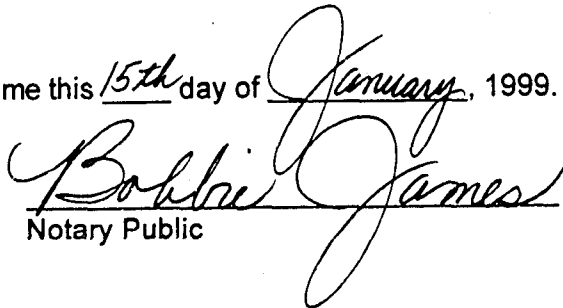 me this 15th day of January, 1999.
Bobbie James
Notary Public